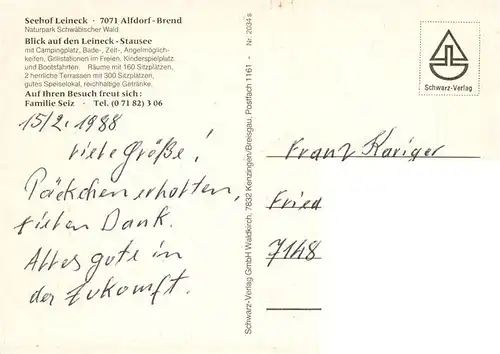 Seehof Leineck · 7071 Alfdorf-Brend
Naturpark Schwäbischer Wald
Blick auf den Leineck-Stausee
mit Campingplatz, Bade-, Zelt-, Angelmöglich-
keiten, Grillstationen im Freien, Kinderspielplatz
und Bootsfahrten. Räume mit 160 Sitzplätzen,
2 herrliche Terrassen mit 300 Sitzplätzen,
gutes Speiselokal, reichhaltige Getränke.
Auf Ihren Besuch freut sich:
Familie Seiz · Tel. (0 71 82) 3 06
15/2. 1988
viele Größe!
Päckchen erhalten,
vielen Dank.
Alles gute in
der Zukomft.
Schwarz-Verlag GmbH Waldkirch, 7832 Kenzingen/Breisgau, Postfach 1161 - Nr. 2034 s
Schwarz-Verlag
Franz Kariger
Fried
7148